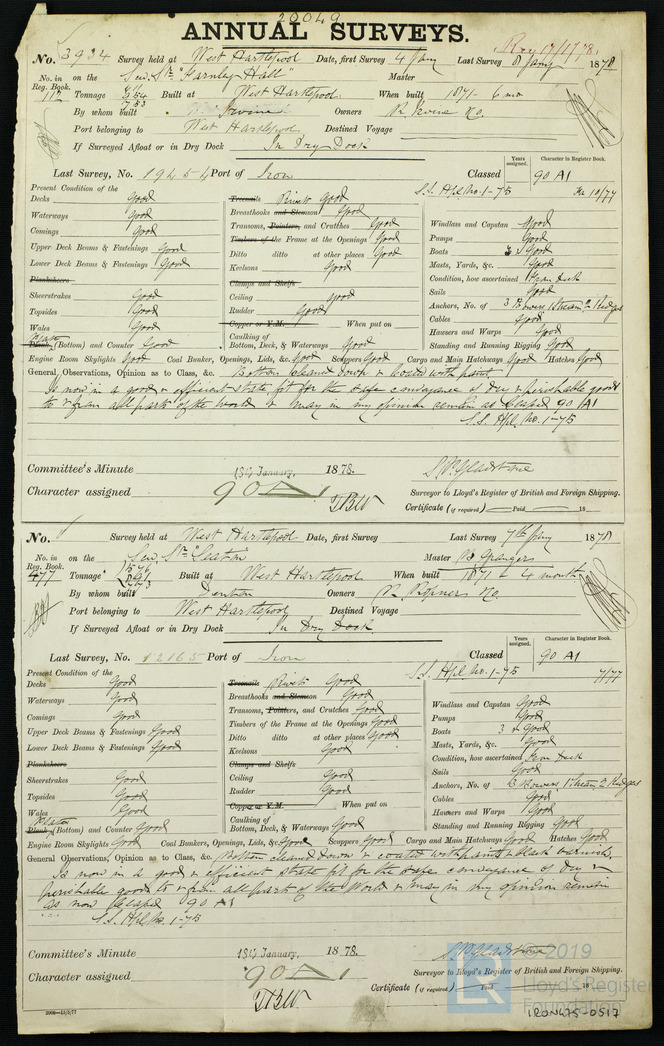 20049
ANNUAL SURVEYS.
Rey 17/1/78.
No. 3934 Survey held at West Hartlepool Date, first Survey 4 Jany Last Survey 8 Jany 1878
No. in Reg. Book. on the Sew. Str. "Farnley Hall" Master
112 Tonnage Built at West Hartlepool When built 1871 - 6 mo
By whom built Irvine Owners R. Irvine & Co.
Port belonging to West Hartlepool Destined Voyage
If Surveyed Afloat or in Dry Dock In Dry Dock
Years assigned. Character in Register Book.
Last Survey, No. 19454 Port of Iron Classed 90 A1
S.S. Hpl. No. 1-75 10/77
Present Condition of the
Decks Good
Waterways Good
Comings Good
Upper Deck Beams & Fastenings Good
Lower Deck Beams & Fastenings Good
Planksheers
Sheerstrakes Good
Topsides Good
Wales Good
Plates
Plank (Bottom) and Counter Good
Treenails Rivets Good
Breasthooks and Stemson Good
Transoms, Pointers, and Crutches Good
Timbers of the Frame at the Openings Good
Ditto ditto at other places Good
Keelsons Good
Clamps and Shelfs
Ceiling Good
Rudder Good
Copper or Y.M. When put on
Caulking of
Bottom, Deck, & Waterways Good
Windlass and Capstan Good
Pumps Good
Boats 3 Good
Masts, Yards, &c. Good
Condition, how ascertained From deck
Sails Good
Anchors, No. of 3 Bowers 1 Stream 2 Kedges
Cables Good
Hawsers and Warps Good
Standing and Running Rigging Good
Engine Room Skylights Good Coal Bunker, Openings, Lids, &c. Good Scuppers Good Cargo and Main Hatchways Good Hatches Good
General Observations, Opinion as to Class, &c. Bottom cleaned down & coated with paint
Is now in a good & efficient state fit for the safe conveyance of dry & perishable goods
to & from all parts of the world & may in my opinion remain as classed 90 A1
S.S. Hpl. No. 1-75
Committee's Minute 18th January, 1878.
Character assigned 90 A1
TBW
S. P. Gladstone
Surveyor to Lloyd's Register of British and Foreign Shipping.
Certificate (if required) Paid 18
No. Survey held at West Hartlepool Date, first Survey Last Survey 7th Jany 1878
No. in Reg. Book. on the Sew. Str. "Seaton" Master Granger
477 Tonnage Built at West Hartlepool When built 1871 - 4 month
By whom built Denton Owners R. Ropner & Co.
Port belonging to West Hartlepool Destined Voyage
If Surveyed Afloat or in Dry Dock In Dry Dock
Years assigned. Character in Register Book.
Last Survey, No. 12165 Port of Iron Classed 90 A1
S.S. Hpl. No. 1-75 7/77
Present Condition of the
Decks Good
Waterways Good
Comings Good
Upper Deck Beams & Fastenings Good
Lower Deck Beams & Fastenings Good
Planksheers
Sheerstrakes Good
Topsides Good
Wales Good
Plates
Plank (Bottom) and Counter Good
Treenails Rivets Good
Breasthooks and Stemson Good
Transoms, Pointers, and Crutches Good
Timbers of the Frame at the Openings Good
Ditto ditto at other places Good
Keelsons Good
Clamps and Shelfs
Ceiling Good
Rudder Good
Copper or Y.M. When put on
Caulking of
Bottom, Deck, & Waterways Good
Windlass and Capstan Good
Pumps Good
Boats 3 Good
Masts, Yards, &c. Good
Condition, how ascertained From deck
Sails Good
Anchors, No. of 3 Bowers 1 Stream 2 Kedges
Cables Good
Hawsers and Warps Good
Standing and Running Rigging Good
Engine Room Skylights Good Coal Bunkers, Openings, Lids, &c. Good Scuppers Good Cargo and Main Hatchways Good Hatches Good
General Observations, Opinion as to Class, &c. Bottom cleaned down & coated with paint & black varnish.
Is now in a good & efficient state fit for the safe conveyance of dry &
perishable goods to & from all parts of the World & may in my opinion remain
as now classed 90 A1
S.S. Hpl. No. 1-75
Committee's Minute 18th January, 1878.
Character assigned 90 A1
TBW
S. P. Gladstone
Surveyor to Lloyd's Register of British and Foreign Shipping.
Certificate (if required) 18
© 2019
Lloyd's Register
Foundation
2000-15/5/77
IRON475-0517